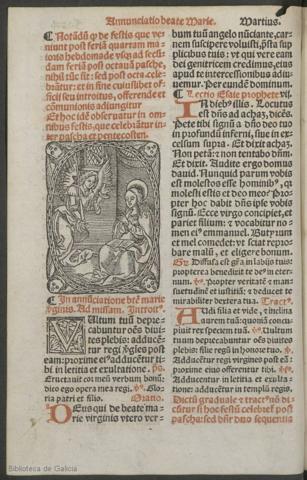 Annunciatio beate Marie. Martius.
¶ Notādū ꝙ de festis que ve-
niunt post feriā quartam ma-
ioris hebdomade vsq; ad secū-
dam feriā post octauā pasche,
nihil fit: sed post octa. cele-
brātur: et in fine cuiuslibet of-
ficij seu introitus, offerende et
cōmunionis adiungitur
Et hoc idē obseruatur in om-
nibus festis, que celebrātur in-
ter pascha et pentecosten.
¶ In annūciatione btē marie
v̄ginis. Ad missam. Introit⁹.
VUltum tuū depre-
cabuntur oēs diui-
tes plebis: adducē-
tur regi v̄gīes post
eam: proxime ei⁹ adducētur ti-
bi in letitia et exultatione. ps.
Eructauit cor meū verbum bonū:
dico ego opera mea regi. ℣. Glo-
ria patri et filio. Oratio.
DEus qui de beate ma-
rie virginis vtero ver-
bum tuū angelo nūciante, car-
nem suscipere voluisti, p̄sta sup
plicibus tuis: vt qui vere eam
dei genitricem credimus, eius
apud te intercessionibus adiu-
uemur. Per eundem dominum.
¶ Lectio Esaie prophete vij.
IN dieb⁹ illis. Locutus
est dn̄s ad achaz, dicēs.
Pete tibi signū a dn̄o deo tuo
in profundū inferni, siue in ex-
celsum supra. Et dixit achaz.
Non petā: z non tentabo dn̄m.
Et dixit. Audite ergo domus
dauid. Nunquid parum vobis
est molestos esse hominib⁹, q̄
molesti estis et deo meo? Pro-
pter hoc dabit dn̄s ipse vobis
signū. Ecce virgo concipiet, et
pariet filium: z vocabitur no-
men ei⁹ emmanuel. Butyrum
et mel comedet: vt sciat repro-
bare malū, et eligere bonum.
Diffusa est gr̄a in labijs tuis:
propterea benedixit te de⁹ in eter-
num. ℣. propter veritatē z man-
suetudinē et iustitiā: z deducet te
mirabiliter dextera tua. Tract⁹.
AUdi filia et vide, z inclina
aurem tuā: quoniā concu-
piuit rex speciem tuā. ℣. Uultum
tuum deprecabuntur oēs diuites
plebis: filie regū in honore tuo. ℣.
Adducētur regi virgines post eā:
proxime eius offerentur tibi. ℣.
Adducentur in letitia et exulta-
tione: adducētur in templū regis.
Dictū graduale z tract⁹ sū di-
cūtur si hoc festū celebret̄ post
pascha: sed dn̄r duo sequentia
Biblioteca de Galicia